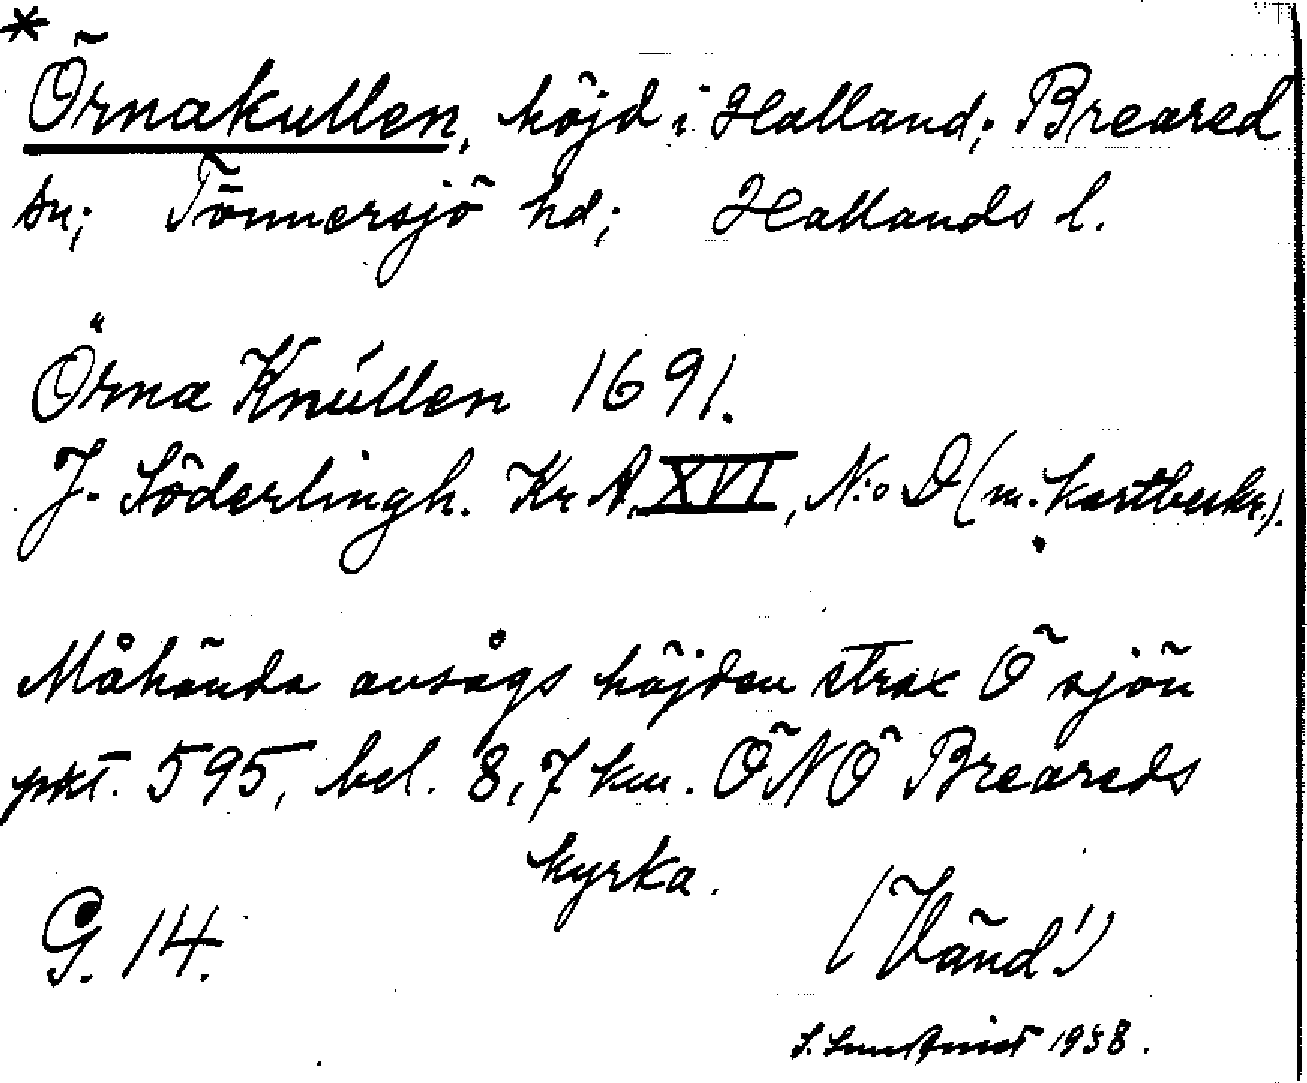 *
Örnakullen, höjd i Halland; Breared
sn; Tönnersjö hd; Hallands l.
Örna Knúllen 1691.
J. Söderlingh. Kr A, XVI, N:o D (m. kartbeskr.).
Måhända avsågs höjden strax Ö sjön
pkt. 595, bel. 8,7 km. ÖNÖ Breareds
kyrka.
G. 14.
(Vänd!)
S. 1938.